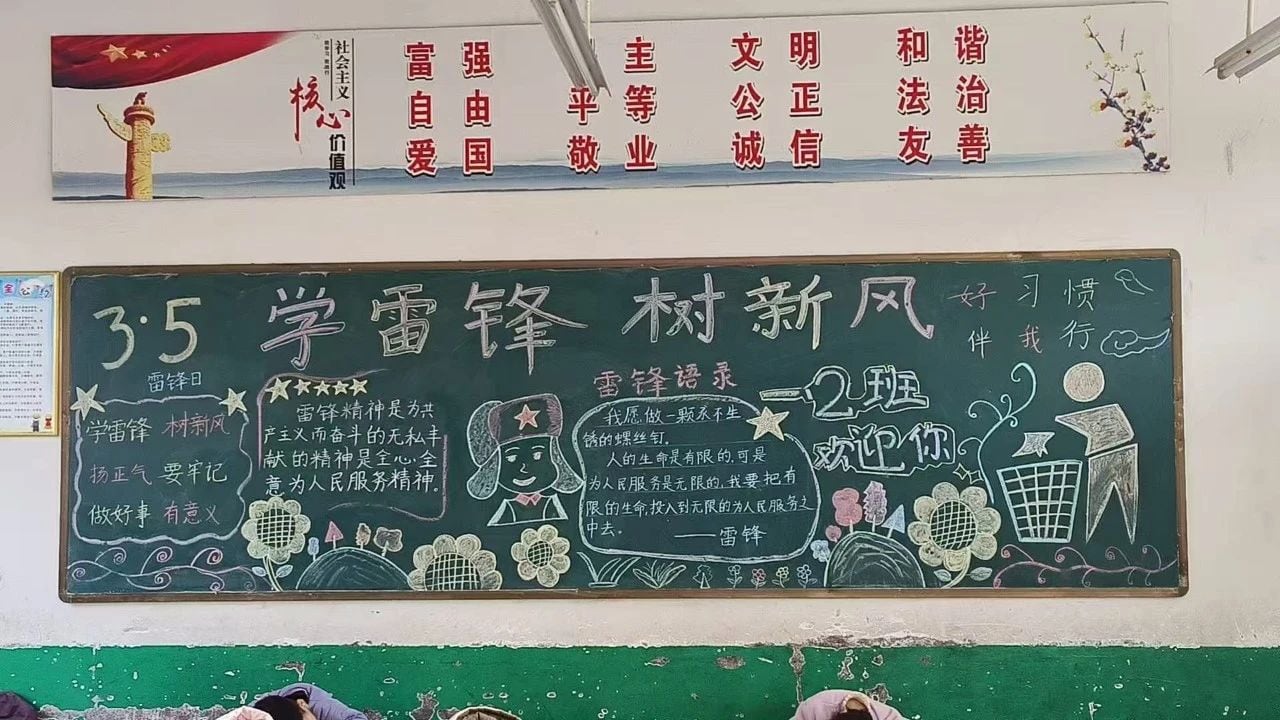 社会主义
核心
价值观
富强 主 文明 和谐
自由 平等 公正 法治
爱国 敬业 诚信 友善
3·5 学雷锋 树新风
好习惯
伴我行
雷锋日
学雷锋 树新风
扬正气 要牢记
做好事 有意义
雷锋精神是为共
产主义而奋斗的无私丰
献的精神是全心全
意为人民服务精神.
雷锋语录
我愿做一颗永不生
锈的螺丝钉.
人的生命是有限的,可是
为人民服务是无限的,我要把有
限的生命,投入到无限的为人民服务之
中去。
——雷锋
一2班
欢迎你